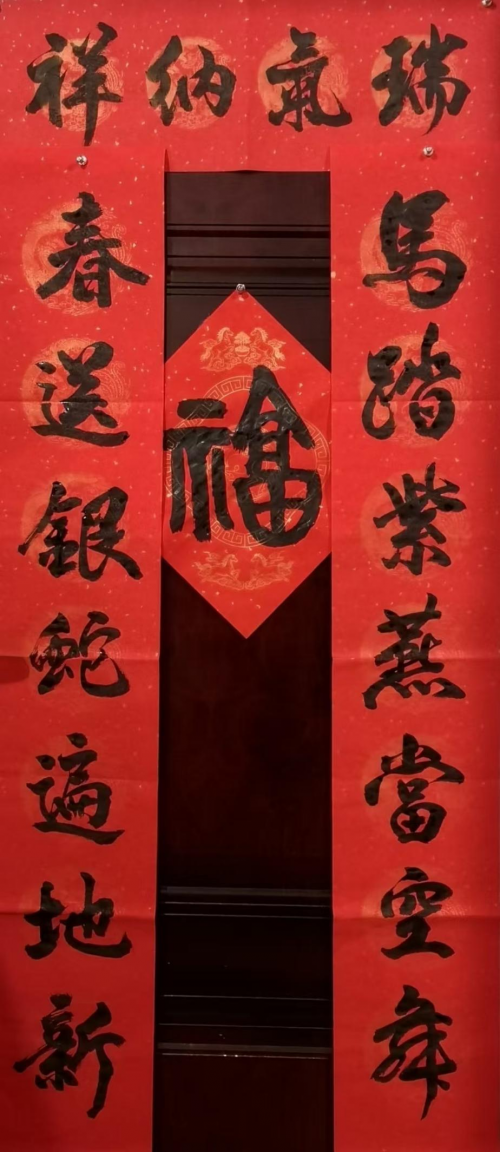 瑞氣納祥
馬踏紫燕當空舞
春送銀蛇遍地新
福